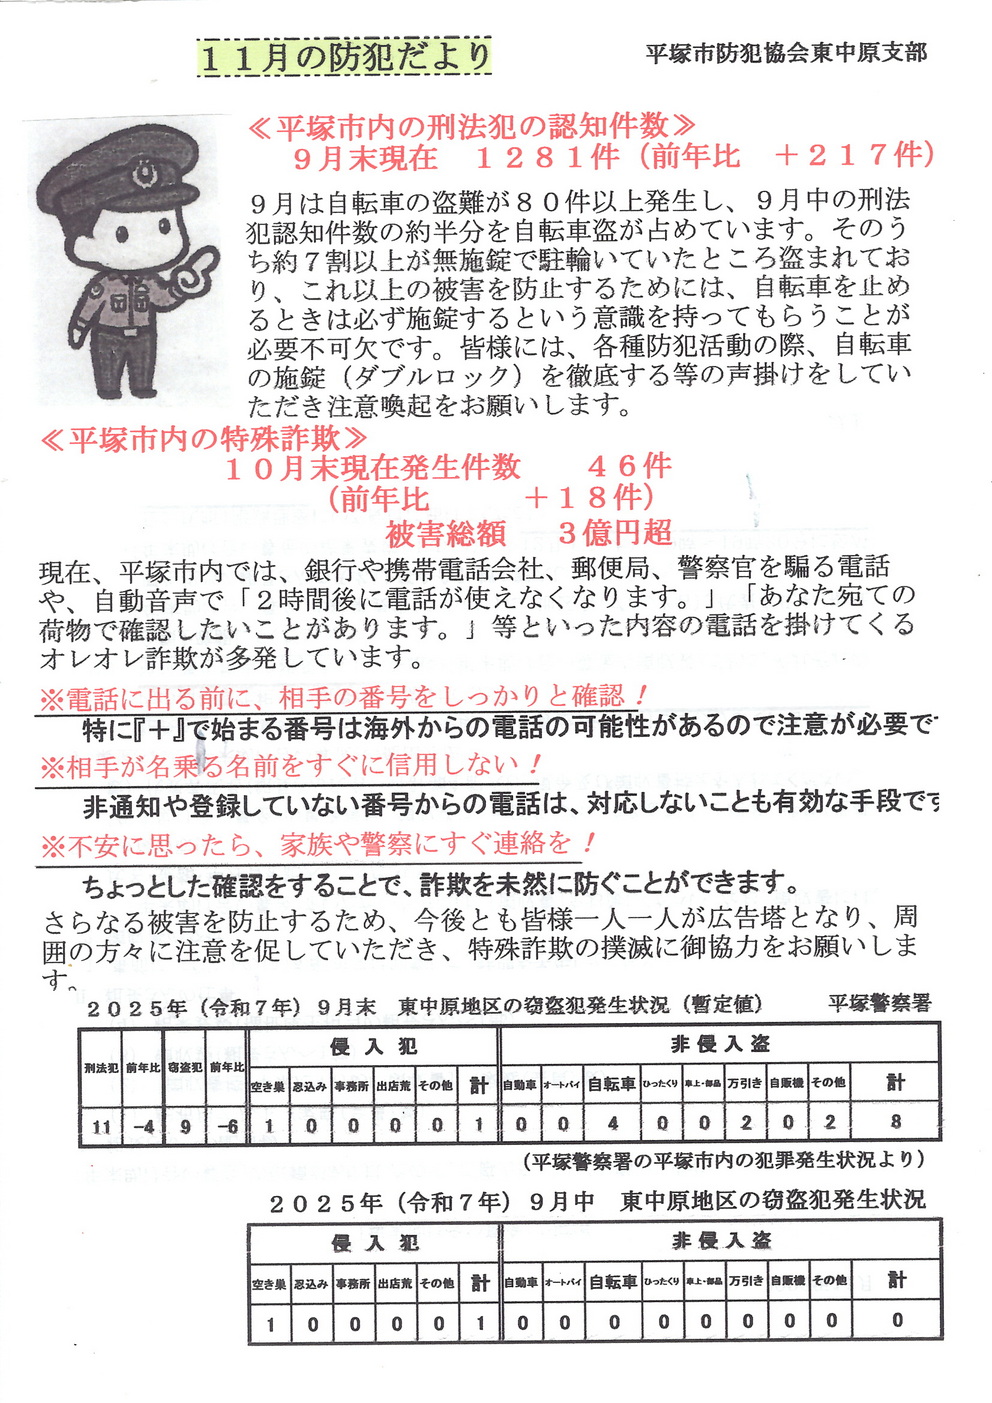 11月の防犯だより
平塚市防犯協会東中原支部
≪平塚市内の刑法犯の認知件数≫
9月末現在　1281件（前年比　＋217件）
9月は自転車の盗難が80件以上発生し、9月中の刑法
犯認知件数の約半分を自転車盗が占めています。そのう
ち約7割以上が無施錠で駐輪いていたところ盗まれてお
り、これ以上の被害を防止するためには、自転車を止め
るときは必ず施錠するという意識を持ってもらうことが
必要不可欠です。皆様には、各種防犯活動の際、自転車
の施錠（ダブルロック）を徹底する等の声掛けをしてい
ただき注意喚起をお願いします。
≪平塚市内の特殊詐欺≫
10月末現在発生件数　46件
（前年比　＋18件）
被害総額　3億円超
現在、平塚市内では、銀行や携帯電話会社、郵便局、警察官を騙る電話
や、自動音声で「2時間後に電話が使えなくなります。」「あなた宛ての
荷物で確認したいことがあります。」等といった内容の電話を掛けてくる
オレオレ詐欺が多発しています。
※電話に出る前に、相手の番号をしっかりと確認！
特に『＋』で始まる番号は海外からの電話の可能性があるので注意が必要で
※相手が名乗る名前をすぐに信用しない！
非通知や登録していない番号からの電話は、対応しないことも有効な手段です
※不安に思ったら、家族や警察にすぐ連絡を！
ちょっとした確認をすることで、詐欺を未然に防ぐことができます。
さらなる被害を防止するため、今後とも皆様一人一人が広告塔となり、周
囲の方々に注意を促していただき、特殊詐欺の撲滅に御協力をお願いしま
す。
2025年（令和7年）9月末　東中原地区の窃盗犯発生状況（暫定値）　平塚警察署
刑法犯 前年比 窃盗犯 前年比 侵入犯 非侵入盗
空き巣 忍込み 事務所 出店荒 その他 計 自動車 オートバイ 自転車 ひったくり 車上・部品 万引き 自販機 その他 計
11 -4 9 -6 1 0 0 0 0 1 0 0 4 0 0 2 0 2 8
（平塚警察署の平塚市内の犯罪発生状況より）
2025年（令和7年）9月中　東中原地区の窃盗犯発生状況
侵入犯 非侵入盗
空き巣 忍込み 事務所 出店荒 その他 計 自動車 オートバイ 自転車 ひったくり 車上・部品 万引き 自販機 その他 計
1 0 0 0 0 1 0 0 0 0 0 0 0 0 0